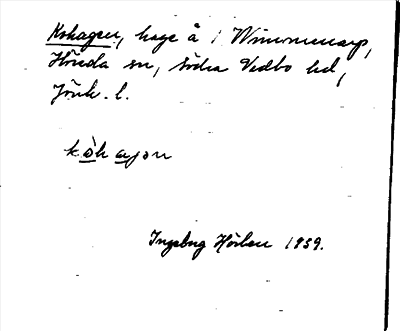 Kohagen, hage å 1 Wimmenarp,
Hörda sn, Södra Vedbo hd,
Jönk. l.
kòhagən
Ingeborg Hörlén 1939.